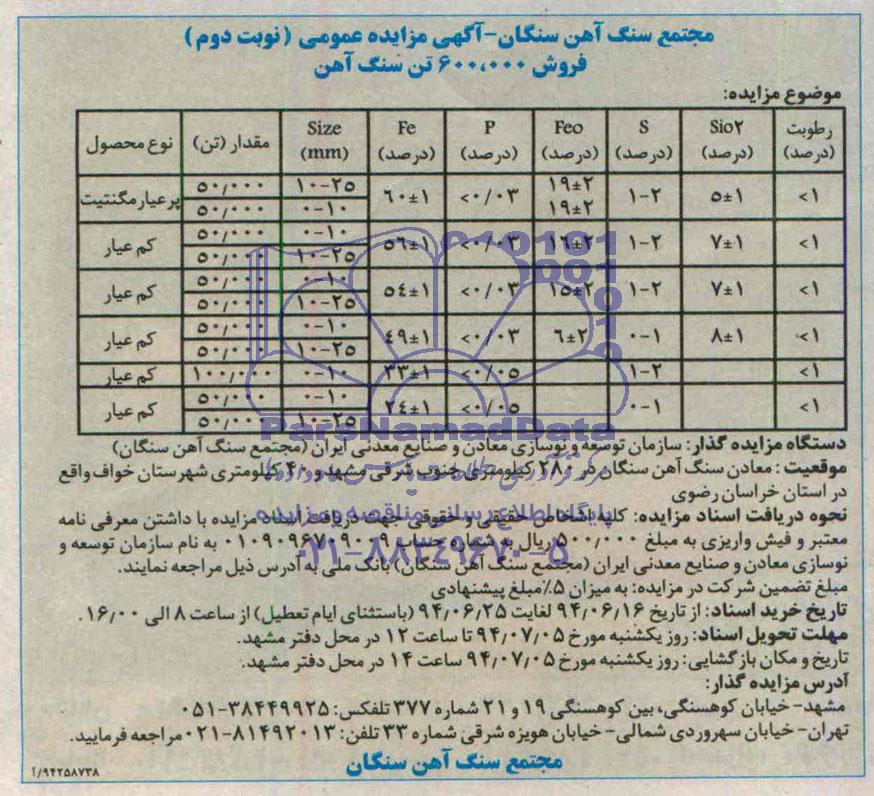 مجتمع سنگ آهن سنگان-آگهی مزایده عمومی (نوبت دوم)
فروش ۶۰۰،۰۰۰ تن سنگ آهن
موضوع مزایده:
نوع محصول | مقدار (تن) | Size (mm) | Fe (درصد) | P (درصد) | Feo (درصد) | S (درصد) | Sio۲ (درصد) | رطوبت (درصد)
پرعیار مگنتیت | ۵۰/۰۰۰ | ۱۰-۲۵ | ۶۰±۱ | <۰/۰۳ | ۱۹±۲ | ۱-۲ | ۵±۱ | <۱
۵۰/۰۰۰ | ۰-۱۰ | ۱۹±۲
کم عیار | ۵۰/۰۰۰ | ۰-۱۰ | ۵۶±۱ | <۰/۰۳ | ۱۶±۲ | ۱-۲ | ۷±۱ | <۱
۵۰/۰۰۰ | ۱۰-۲۵
کم عیار | ۵۰/۰۰۰ | ۰-۱۰ | ۵۴±۱ | <۰/۰۳ | ۱۵±۲ | ۱-۲ | ۷±۱ | <۱
۵۰/۰۰۰ | ۱۰-۲۵
کم عیار | ۵۰/۰۰۰ | ۰-۱۰ | ۴۹±۱ | <۰/۰۳ | ۶±۲ | ۰-۱ | ۸±۱ | <۱
۵۰/۰۰۰ | ۱۰-۲۵
کم عیار | ۱۰۰/۰۰۰ | ۰-۱۰ | ۳۳±۱ | <۰/۰۵ | ۱-۲ | <۱
کم عیار | ۵۰/۰۰۰ | ۰-۱۰ | ۲۴±۱ | <۰/۰۵ | ۰-۱ | <۱
۵۰/۰۰۰ | ۱۰-۲۵
ParsNamadData
دستگاه مزایده گذار: سازمان توسعه و نوسازی معادن و صنایع معدنی ایران (مجتمع سنگ آهن سنگان)
موقعیت: معادن سنگ آهن سنگان در ۲۸۰ کیلومتری جنوب شرقی مشهد و ۴۰ کیلومتری شهرستان خواف واقع
در استان خراسان رضوی
نحوه دریافت اسناد مزایده: کلیه اشخاص حقیقی و حقوقی جهت دریافت اسناد مزایده با داشتن معرفی نامه
پایگاه اطلاع رسانی مناقصه و مزایده
معتبر و فیش واریزی به مبلغ ۵۰۰/۰۰۰ ریال به شماره حساب ۰۱۰۹۰۹۶۷۰۹۰۰۹ به نام سازمان توسعه و
۰۲۱-۸۸۳۴۹۶۷۰-۵
نوسازی معادن و صنایع معدنی ایران (مجتمع سنگ آهن سنگان) بانک ملی به آدرس ذیل مراجعه نمایند.
مبلغ تضمین شرکت در مزایده: به میزان ۵٪ مبلغ پیشنهادی
تاریخ خرید اسناد: از تاریخ ۹۴/۰۶/۱۶ لغایت ۹۴/۰۶/۲۵ (باستثنای ایام تعطیل) از ساعت ۸ الی ۱۶/۰۰.
مهلت تحویل اسناد: روز یکشنبه مورخ ۹۴/۰۷/۰۵ تا ساعت ۱۲ در محل دفتر مشهد.
تاریخ و مکان بازگشایی: روز یکشنبه مورخ ۹۴/۰۷/۰۵ ساعت ۱۴ در محل دفتر مشهد.
آدرس مزایده گذار:
مشهد- خیابان کوهسنگی، بین کوهسنگی ۱۹ و ۲۱ شماره ۳۷۷ تلفکس: ۳۸۴۴۹۹۲۵-۰۵۱
تهران- خیابان سهروردی شمالی- خیابان هویزه شرقی شماره ۳۳ تلفن: ۸۱۴۹۲۰۱۳-۰۲۱ مراجعه فرمایید.
مجتمع سنگ آهن سنگان
۹۴۲۵۸۷۳۸/آ